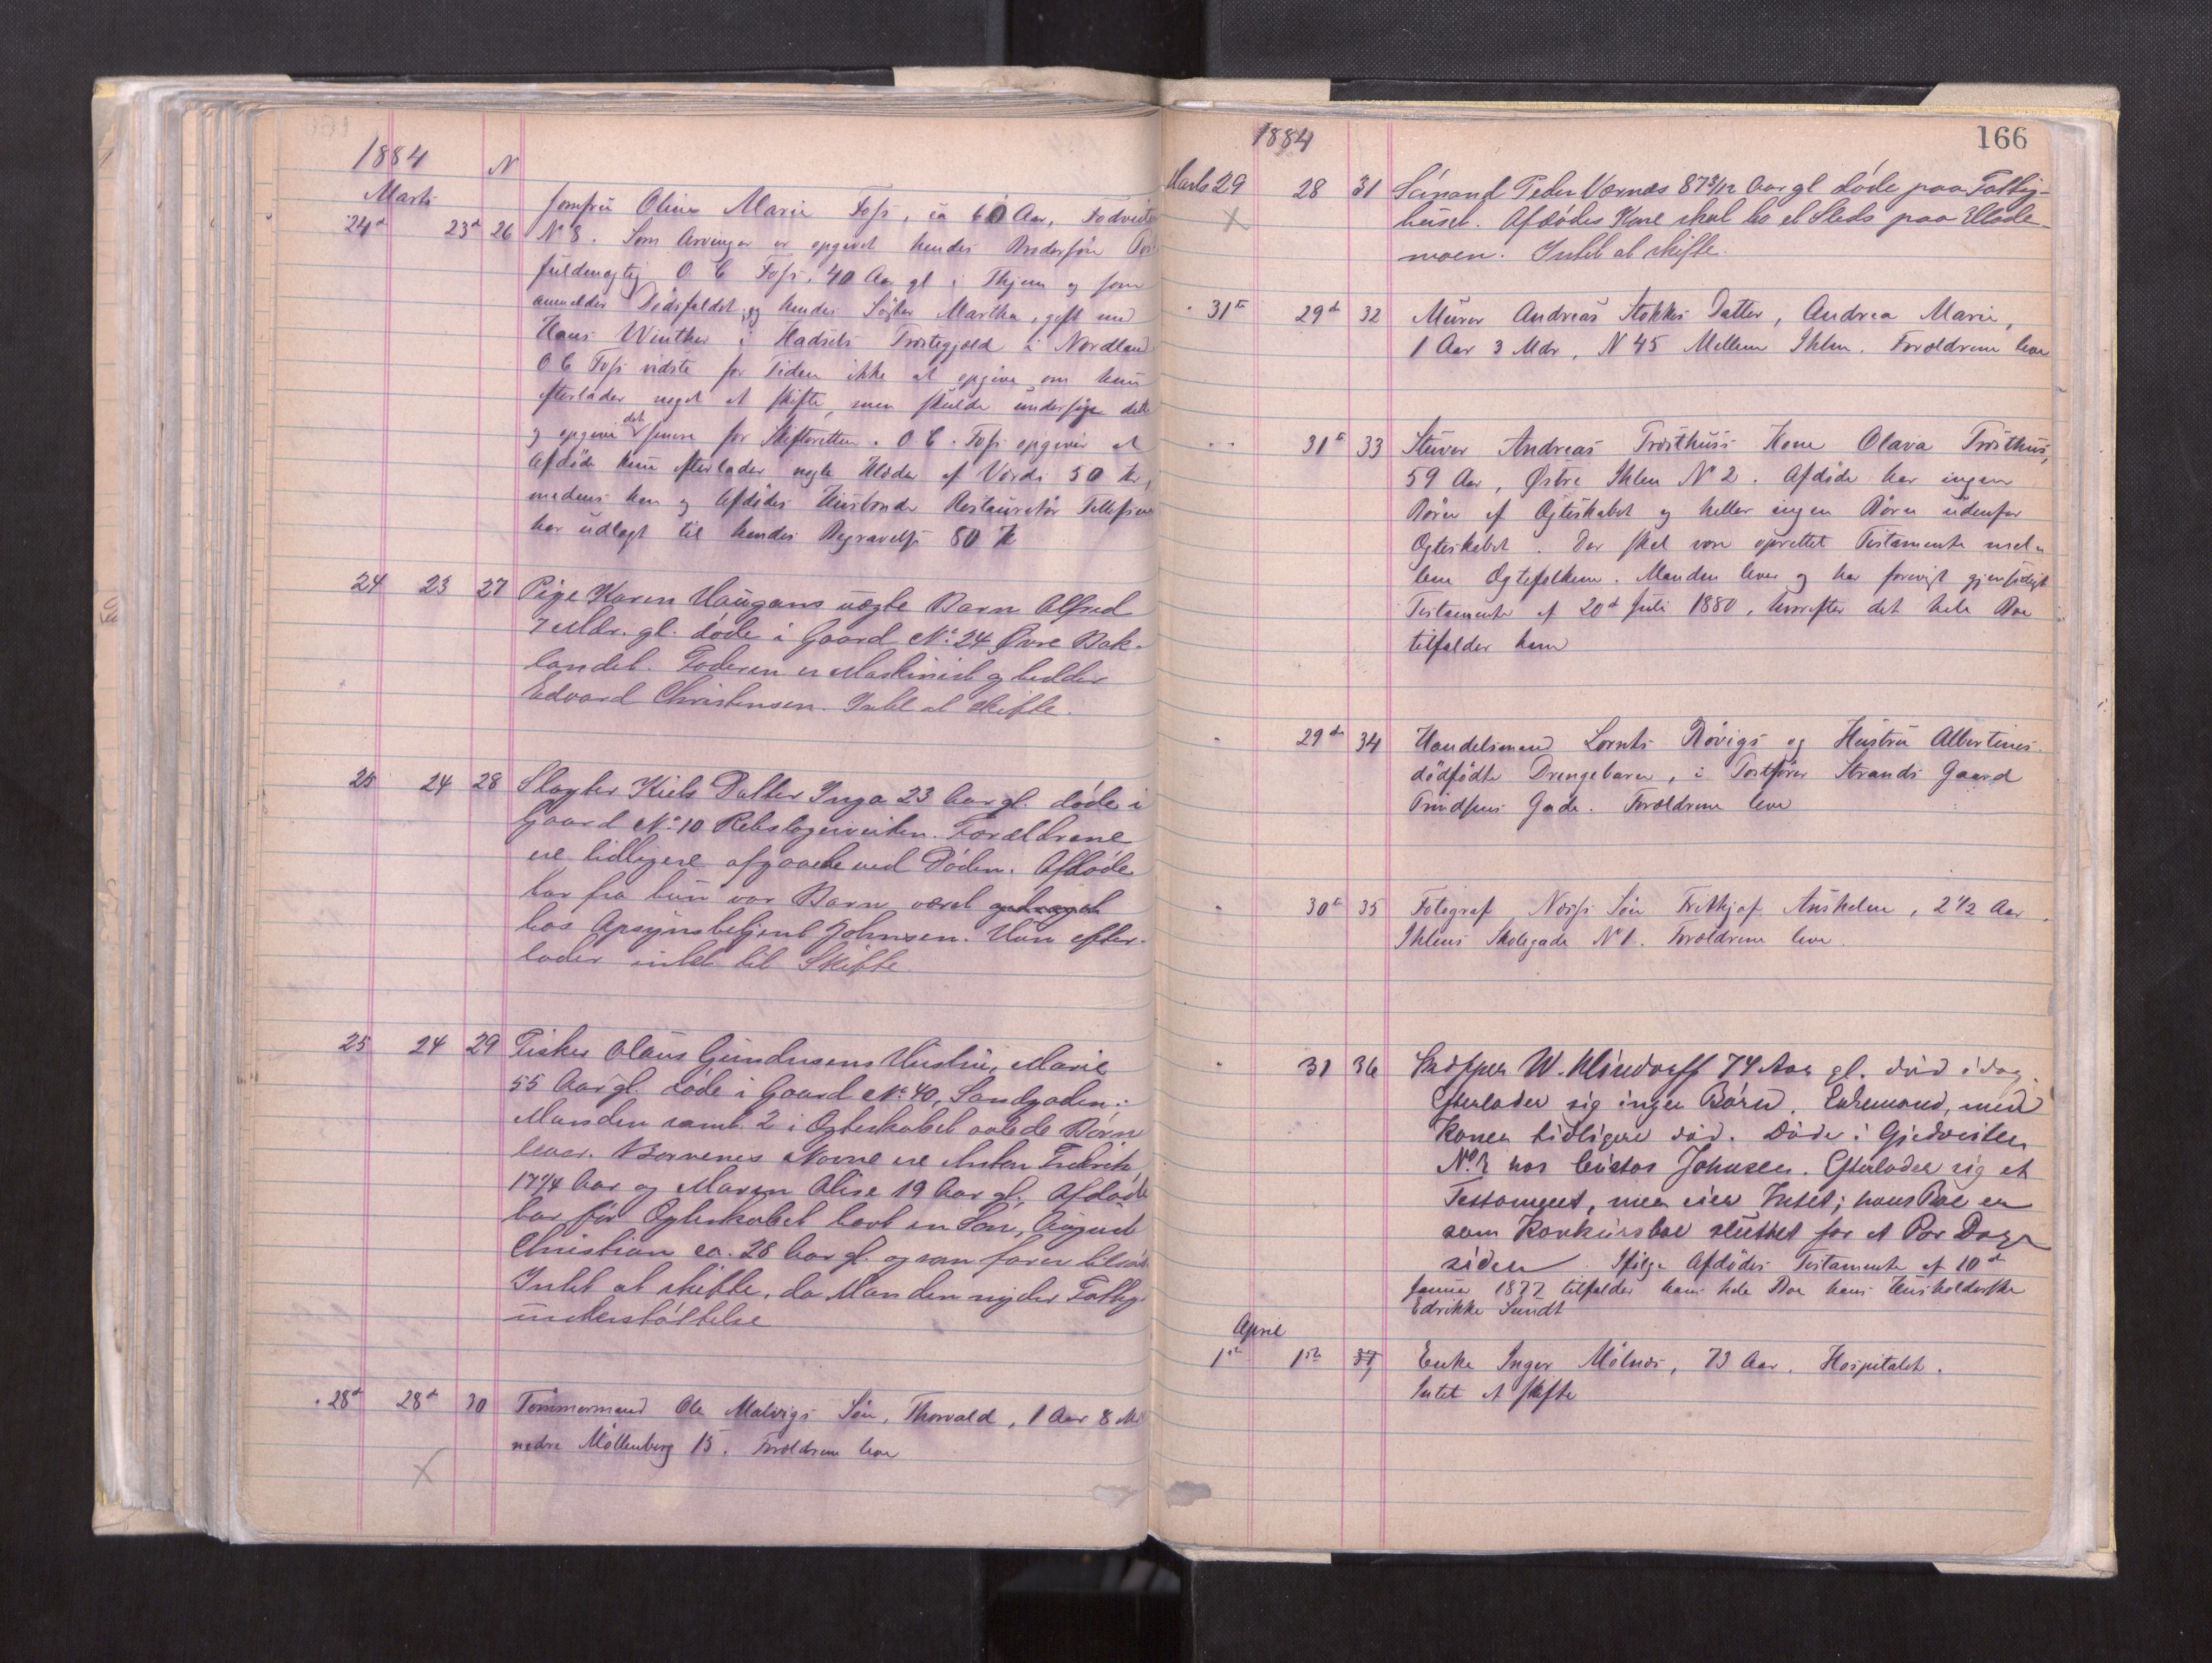 1884
N
Marts
24d 23d 26 Jomfru Oline Marie Foss, ca 60 Aar, Fodveita
No 8. Som Arvinger er opgivet hendes Brodersøn
fuldmægtig O. C Foss, 40 Aar gl i Thjem og som
anmelder Dødsfaldet, og hendes Søster Martha, gift med
Hans Winther i Hadsels Præstegjæld i Nordland
O C Foss vidste for Tiden ikke at opgive om hun
efterlader noget at skifte, men skulde undersøge dette
og opgive det senere for Skifteretten. O. C. Foss opgiver at
Afdøde kun efterlader nogle Klæder af Værdi 50 kr,
medens han og Afdødes Husbonde Restauratør Tellefsen
har udlagt til hendes Begravelse 80 Kr
24 23 27 Pige Karen Haugans uægte Barn Alfred
7 Mdr. gl. døde i Gaard No. 24 Øvre Bak-
landet. Faderen er Maskinist og hedder
Edvard Christensen. Intet at skifte.
25 24 28 Slagter Kiels Datter Inga 23 Aar gl. døde i
Gaard No. 10 Rebslagerveiten. Forældrene
ere tidligere afgaaede ved Døden. Afdøde
har fra hun var Barn været
hos Opsynsbetjent Johnsen. Hun efter-
lader intet til Skifte.
25 24 29 Fisker Olaus Gundersens Hustru, Marie
55 Aar gl. døde i Gaard No. 40, Sandgaden.
Manden samt 2 i Ægteskabet avlede Børn
lever. Børnenes Navne ere Anton Fredrik
17 1/4 Aar og Maren Olise 19 Aar gl. Afdøde
har før Ægteskabet havt en Søn, August
Christian ca. 28 Aar gl. og som farer tilsøs.
Intet at skifte, da Manden nyder Fattig-
understøttelse
28d 28d 30 Tømmermand Ole Malvigs Søn, Thorvald, 1 Aar 8 Md
nedre Møllenberg 15. Forældrene leve
X
1884
166
Marts 29 28 31 Sømand Peder Værnes 87 9/12 Aar gl døde paa Fattig-
X huset. Afdødes Kone skal bo et Steds paa Ellade-
moen. Intet at skifte.
31te 29de 32 Murer Andreas Stokkes Datter, Andrea Marie,
1 Aar 3 Mdr, N 45 Mellem Ihlen. Forældrene leve
31te 33 Stuver Andreas Trøsthus's Kone Olava Trøsthus,
59 Aar, Østre Ihlen No 2. Afdøde har ingen
Børn af Ægteskabet og heller ingen Børn udenfor
Ægteskabet. Der skal være oprettet Testamente mel-
lem Ægtefolkene. Manden lever og har forevist gjensidigt
Testamente af 20d Juli 1880, hvorefter det hele Boe
tilfalder ham
29de 34 Handelsmand Lornts Røvigs og Hustru Albertines
dødfødte Drengebarn, i Postfører Strands Gaard
Prindsens Gade. Forældrene leve
30te 35 Fotograf Næss's Søn Frithjof Anshelm, 2 1/2 Aar,
Ihlens Skolegade No 1. Forældrene leve.
31 36 Skipper W. Klindorff 74 Aar gl. død idag.
Efterlader sig ingen Børn. Enkemand, med
Konen tidligere død. Døde i Gjedveiten
No. 2 hos Custos Johnsen. Efterlader sig et
Testament, men eier Intet; hans Boe er
som Konkursboe sluttet for et Par Dage
siden. Ifølge Afdødes Testamente af 10de
Januar 1872 tilfalder hans hele Boe hans Husholderske
Edrikke Sundt
April
1ste 1ste 37 Enke Inger Mølnes, 73 Aar. Hospitalet.
Intet at skifte